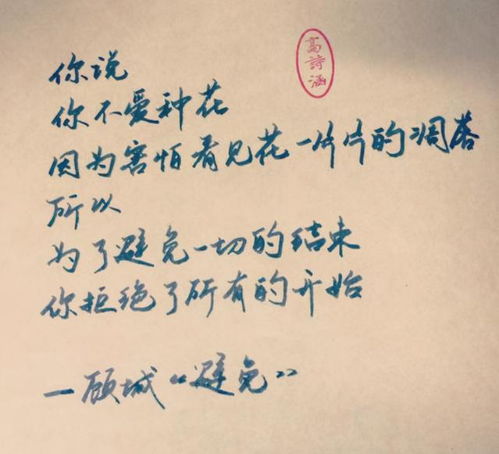 高詩涵
你说
你不爱种花
因为害怕看见花一片片的凋落
所以
为了避免一切的结束
你拒绝了所有的开始
—顾城“避免”